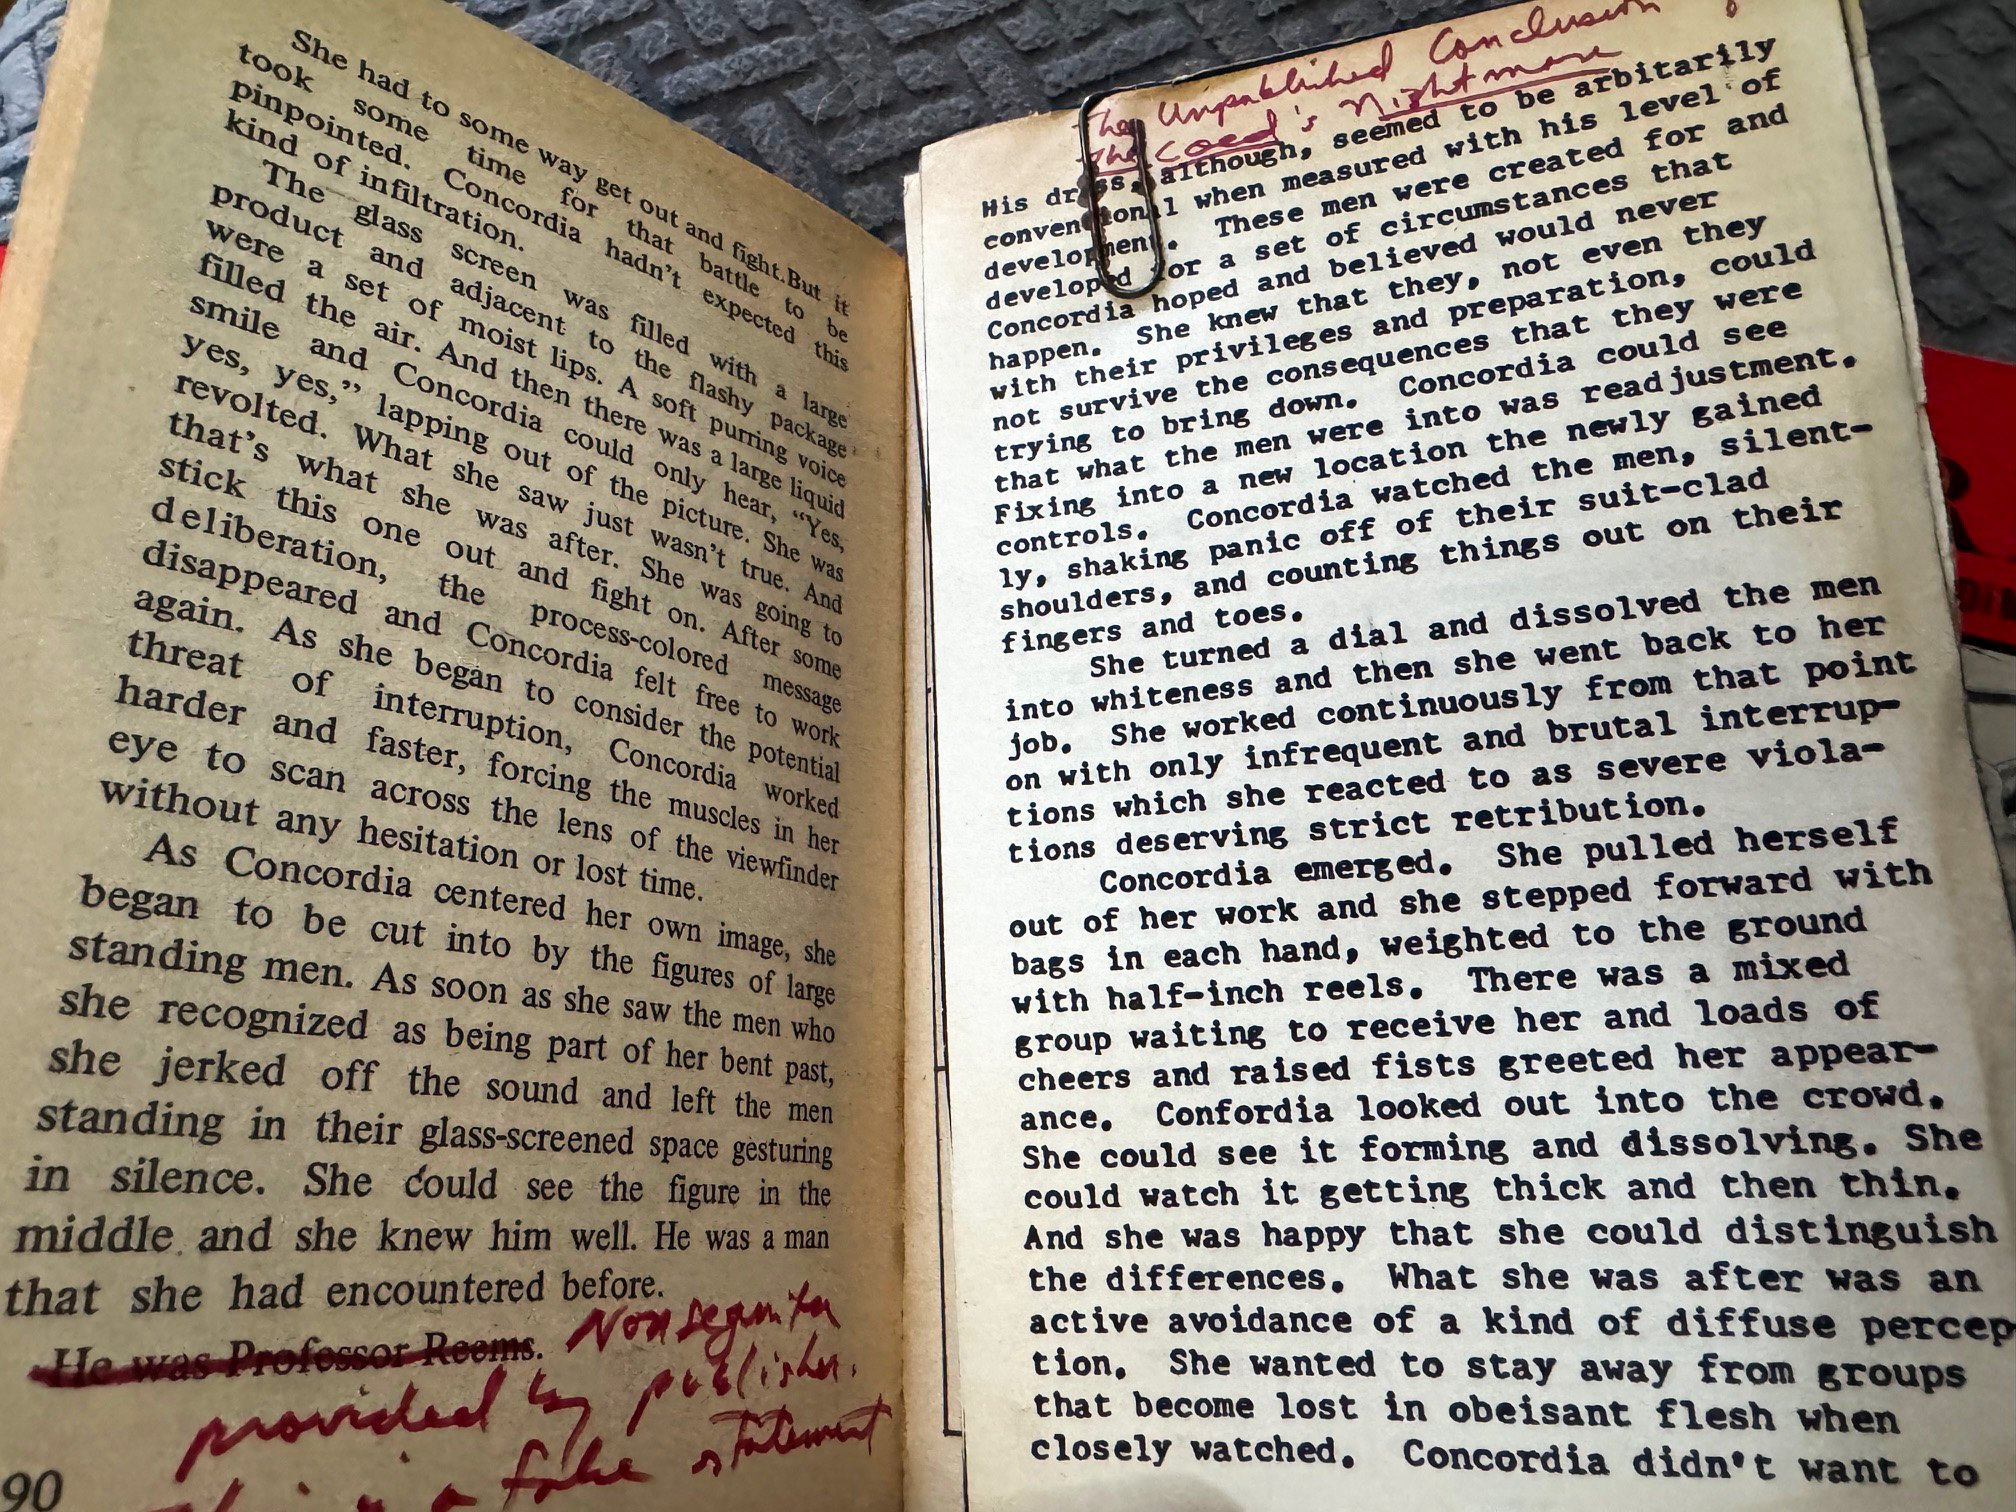 She had to some way get out and fight.But it
took some time for that battle to be
pinpointed. Concordia hadn't expected this
kind of infiltration.
The glass screen was filled with a large
product and adjacent to the flashy package
were a set of moist lips. A soft purring voice
filled the air. And then there was a large liquid
smile and Concordia could only hear, “Yes,
yes, yes,” lapping out of the picture. She was
revolted. What she saw just wasn't true. And
that's what she was after. She was going to
stick this one out and fight on. After some
deliberation, the process-colored message
disappeared and Concordia felt free to work
again. As she began to consider the potential
threat of interruption, Concordia worked
harder and faster, forcing the muscles in her
eye to scan across the lens of the viewfinder
without any hesitation or lost time.
As Concordia centered her own image, she
began to be cut into by the figures of large
standing men. As soon as she saw the men who
she recognized as being part of her bent past,
she jerked off the sound and left the men
standing in their glass-screened space gesturing
in silence. She could see the figure in the
middle and she knew him well. He was a man
that she had encountered before.
He was Professor Reems. Non sequitur
provided by publisher.
This is a false statement
90
The Unpublished Conclusion
The Coed's Nightmare
His dress, although, seemed to be arbitarily
conventional when measured with his level of
development. These men were created for and
developed for a set of circumstances that
Concordia hoped and believed would never
happen. She knew that they, not even they
with their privileges and preparation, could
not survive the consequences that they were
trying to bring down. Concordia could see
that what the men were into was readjustment.
Fixing into a new location the newly gained
controls. Concordia watched the men, silent-
ly, shaking panic off of their suit-clad
shoulders, and counting things out on their
fingers and toes.
She turned a dial and dissolved the men
into whiteness and then she went back to her
job. She worked continuously from that point
on with only infrequent and brutal interrup-
tions which she reacted to as severe viola-
tions deserving strict retribution.
Concordia emerged. She pulled herself
out of her work and she stepped forward with
bags in each hand, weighted to the ground
with half-inch reels. There was a mixed
group waiting to receive her and loads of
cheers and raised fists greeted her appear-
ance. Confordia looked out into the crowd.
She could see it forming and dissolving. She
could watch it getting thick and then thin.
And she was happy that she could distinguish
the differences. What she was after was an
active avoidance of a kind of diffuse percep
tion. She wanted to stay away from groups
that become lost in obeisant flesh when
closely watched. Concordia didn't want to